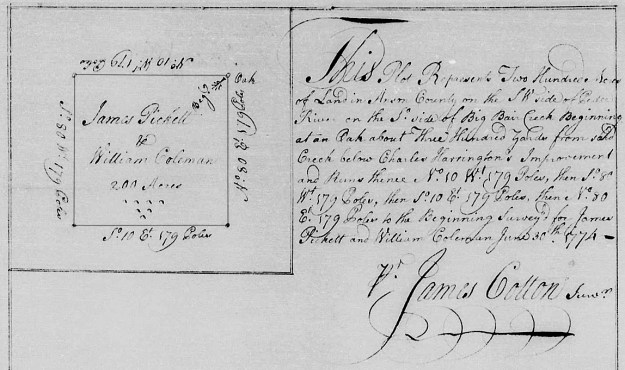 No 10 Wt 179 Poles
Beg'g
Oak
So 80 Wt 179 Poles
James Pickett
&
William Coleman
200 Acres
No 80 Et 179 Poles
So 10 Et 179 Poles
This Plot Represents Two Hundred Acres
of Land in Anson County on the SW side of Pedee
River on the So side of Big Bair Creek Beginning
at an Oak about Three Hundred yards from said
Creek below Charles Harrington's Improvement
and Runs thence No 10 Wt 179 Poles, then So 80
Wt 179 Poles, then So 10 Et 179 Poles, then No 80
Et 179 Poles to the Beginning Surveyd for James
Pickett and William Coleman June 30th 1774
Pr James Cotton Survr